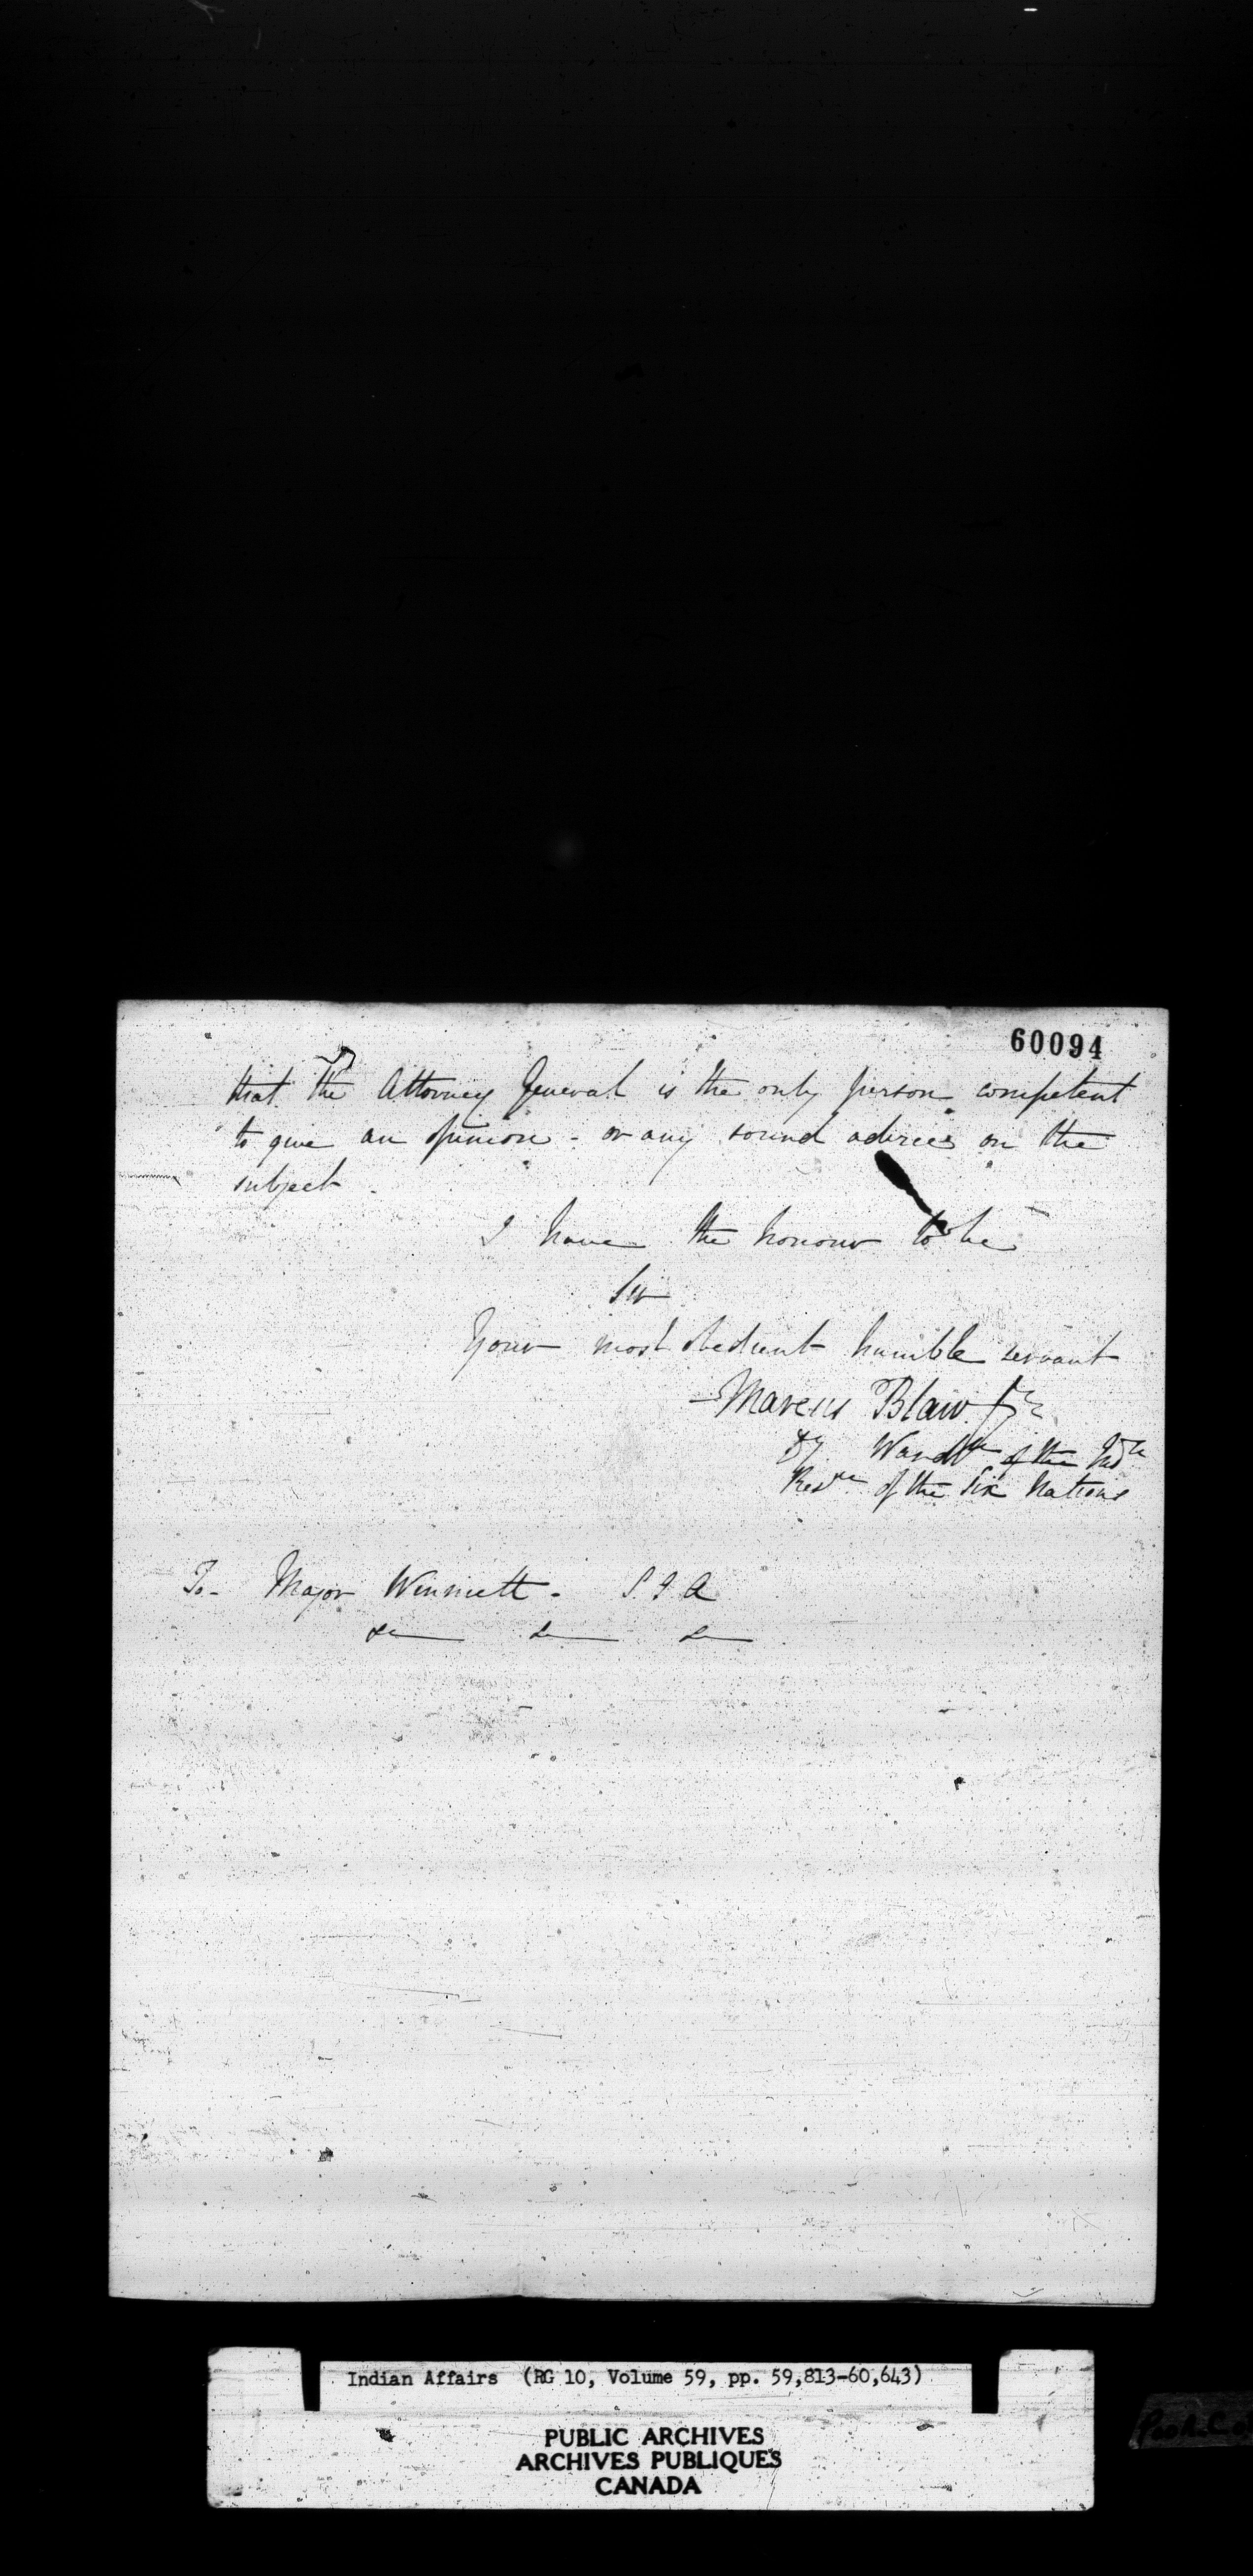 60094
that the Attorney General is the only person competent
to give an opinion - or any sound advice on the
subject.
I have the honour to be
Sir
Your most obedient humble servant
Marcus Blair
of the
of the Six Nations
To - Major Winniett - S I A
&c &c &c
Indian Affairs (RG 10, Volume 59, pp. 59,813-60,643)
PUBLIC ARCHIVES
ARCHIVES PUBLIQUES
CANADA